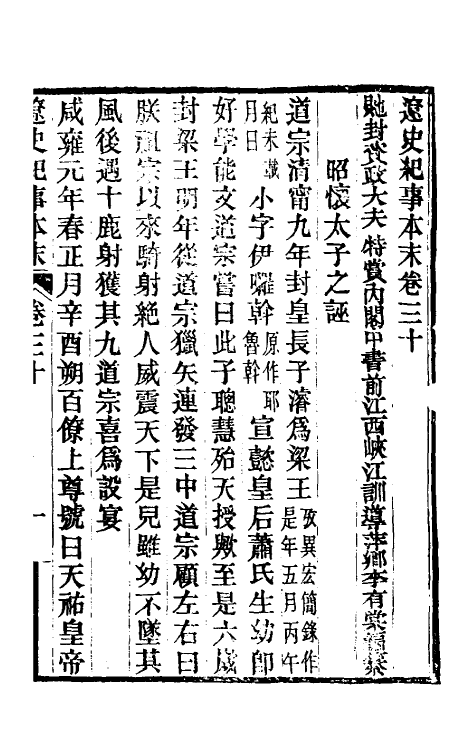 遼史紀事本末卷三十
馳封資政大夫特賞內閣中書前江西峽江訓導萍鄉李有棠編纂
昭懷太子之誣
道宗清甯九年封皇長子濬爲梁王攷異宏簡錄作是年五月丙午
紀未載月日小字伊囉斡原作耶魯斡宣懿皇后蕭氏生幼卽
好學能文道宗嘗曰此子聰慧殆天授歟至是六歲
封梁王明年從道宗獵矢連發三中道宗顧左右曰
朕祖宗以來騎射絶人威震天下是兒雖幼不墜其
風後遇十鹿射獲其九道宗喜爲設宴
咸雍元年春正月辛酉朔百僚上尊號曰天祐皇帝
遼史紀事本末 卷三十 一